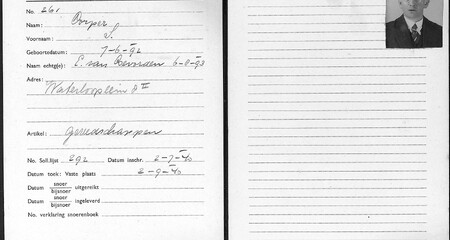 No. 261
Naam: Dooper
Voornaam: S.
Geboortedatum: 7-6-92
Naam echtg(e): E. van 6-8-93
Adres: Waterlooplein 8 II
Artikel: gereedschappen
No. Soll.lijst 292 Datum inschr. 2-7-40
Datum toek: Vaste plaats 2-9-40
Datum snoer bijsnoer uitgereikt
Datum snoer bijsnoer ingeleverd
No. verklaring snoerenboek